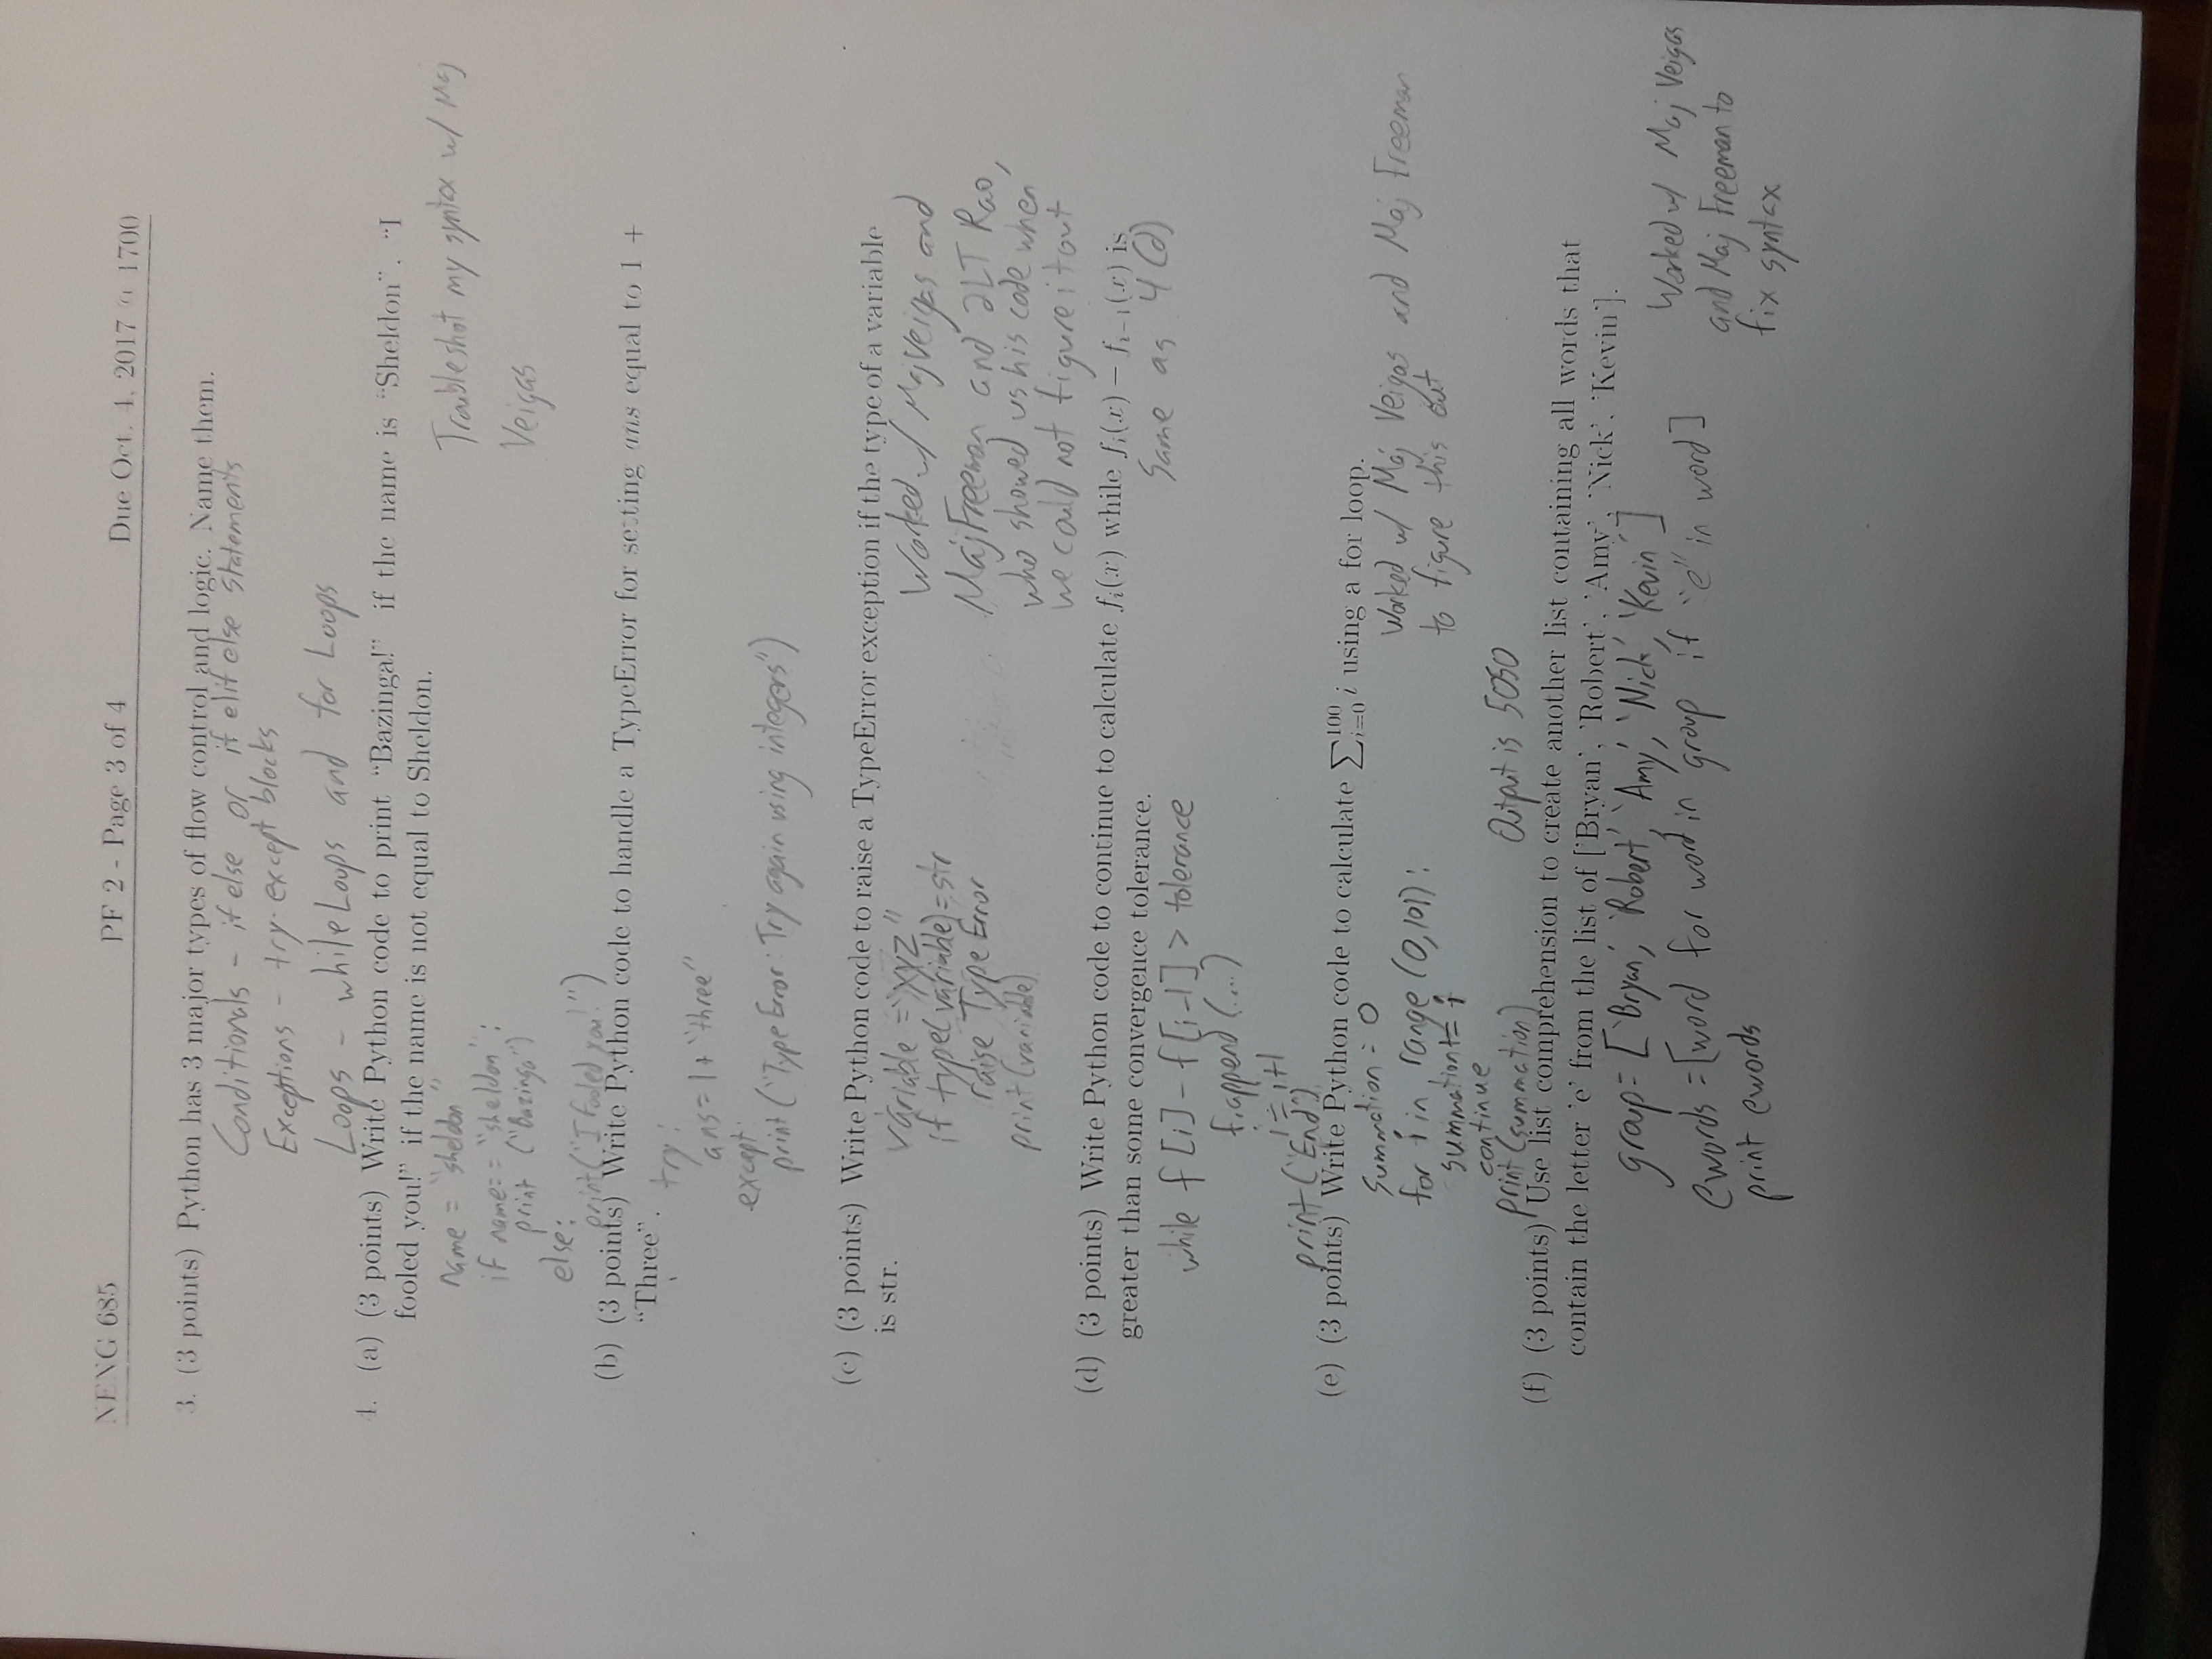 NENG 685 PF 2 - Page 3 of 4 Due Oct. 4, 2017 @ 1700
3. (3 points) Python has 3 major types of flow control and logic. Name them.
Conditionals - if else or if elif else statements
Exceptions - try-except blocks
Loops - while Loops and for Loops
4. (a) (3 points) Write Python code to print “Bazinga!” if the name is “Sheldon”. “I
fooled you!” if the name is not equal to Sheldon.
Name = "sheldon"
if name == "sheldon":
print ("Bazinga")
else:
print("I fooled you!")
Troubleshot my syntax w/ Maj
Veigas
(b) (3 points) Write Python code to handle a TypeError for setting ans equal to 1 +
“Three”.
try:
ans = 1 + "three"
except:
print ("Type Error: Try again using integers")
(c) (3 points) Write Python code to raise a TypeError exception if the type of a variable
is str.
variable = "xyz"
if type(variable) = str
raise Type Error
print (variable)
Worked w/ Maj Veigas and
Maj Freeman and 2LT Rao,
who showed us his code when
we could not figure it out
(d) (3 points) Write Python code to continue to calculate fᵢ(x) while fᵢ(x) − fᵢ₋₁(x) is
greater than some convergence tolerance.
Same as 4 (d)
while f [i] - f [i-1] > tolerance
f.append (...)
i = i+1
print ("End")
(e) (3 points) Write Python code to calculate ∑ᵢ₌₀¹⁰⁰ i using a for loop.
Summation = 0
for i in range (0,101):
summation += i
continue
print (summation)
Output is 5050
Worked w/ Maj Veigas and Maj Freeman
to figure this out
(f) (3 points) Use list comprehension to create another list containing all words that
contain the letter 'e' from the list of ['Bryan', 'Robert', 'Amy', 'Nick', 'Kevin'].
group = ['Bryan', 'Robert', 'Amy', 'Nick', 'Kevin']
ewords = [word for word in group if "e" in word]
print ewords
Worked w/ Maj Veigas
and Maj Freeman to
fix syntax